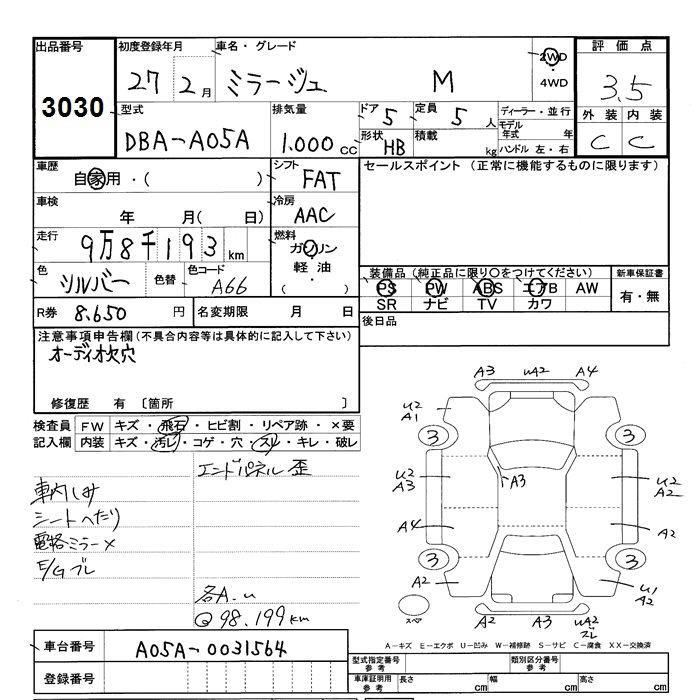 出品番号 初度登録年月 車名・グレード 評価点
3030 27 2月 ミラージュ M 2WD ・ 4WD 3.5
型式 排気量 ドア 5 定員 5人 ディーラー・並行 外装 内装
DBA-A05A 1.000cc 形状 HB 積載 kg モデル年式 年 ハンドル 左・右 C C
車歴 自家用・( ) シフト FAT セールスポイント (正常に機能するものに限ります)
車検 年 月( 日) 冷房 AAC
走行 9万8千193km 燃料 ガソリン・軽油・
色 シルバー 色替 色コード A66 装備品(純正品に限り○をつけてください) 新車保証書
PS PW ABS エアB AW 有・無
R券 8,650円 名変期限 月 日 SR ナビ TV カワ
注意事項申告欄(不具合内容等は具体的に記入して下さい) 後日品
オーディオ欠穴
修復歴 有 〔箇所 〕
検査員 FW キズ・飛石・ヒビ割・リペア跡・×要
記入欄 内装 キズ・汚レ・コゲ・穴・スレ・キレ・破レ
エンドパネル 歪
車内しみ
シートへたり
電格ミラー×
E/Gブレ
各A.u
Q 98.199km
A3 uA2 A4
u2 A1
3 3
A3
u2 A3 u2 A2
A4 A2
3 3
A2 u1 A2
スペア A2 A3 uA2 スレ
A-キズ E-エクボ U-凹み W-補修跡 S-サビ C-腐食 XX-交換済
車台番号 A05A-0031564
登録番号
型式指定番号 参考 類別区分番号 参考
車庫証明用 参考 長さ cm 幅 cm 高さ cm